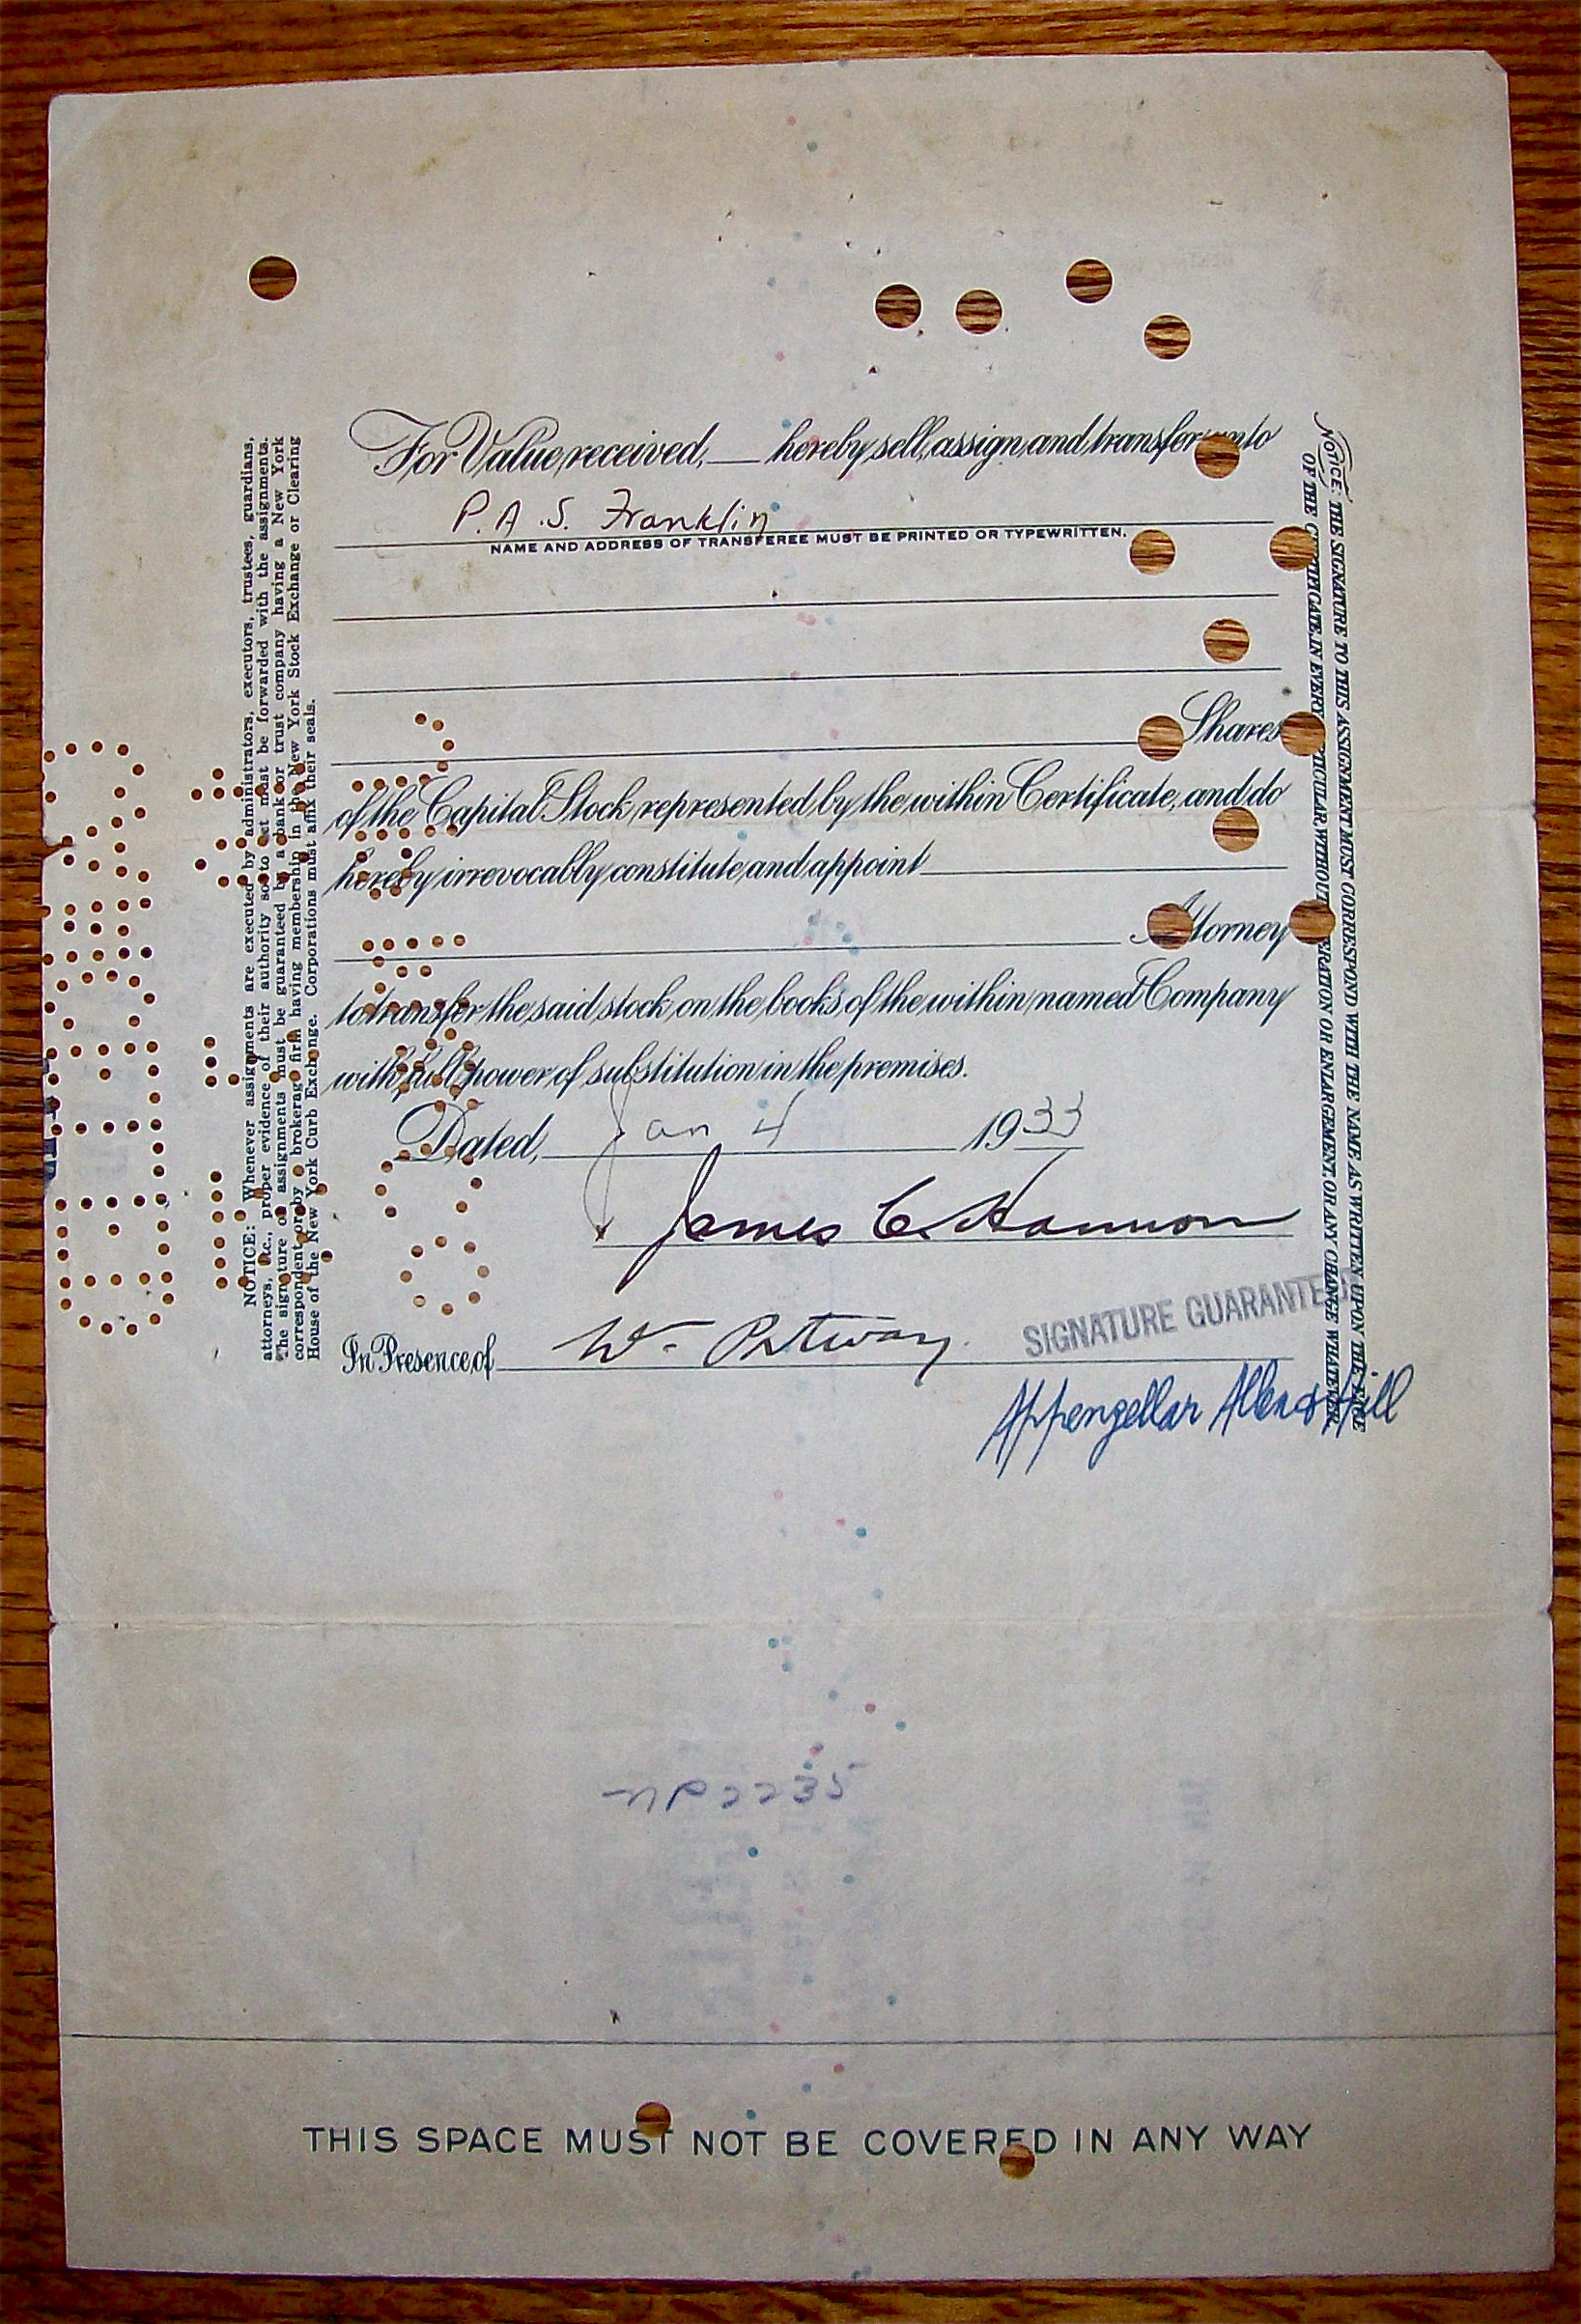 For Value received, hereby sell, assign and transfer unto
P. A. S. Franklin
NAME AND ADDRESS OF TRANSFEREE MUST BE PRINTED OR TYPEWRITTEN.
Shares
of the Capital Stock represented by the within Certificate, and do
hereby irrevocably constitute and appoint
Attorney
to transfer the said stock on the books of the within named Company
with full power of substitution in the premises.
Dated, Jan 4 1933
James C. Hannon
In Presence of W.
SIGNATURE GUARANTEED
NOTICE: Whenever assignments are executed by administrators, executors, trustees, guardians,
attorneys, etc., proper evidence of their authority so to act must be forwarded with the assignments.
The signature on assignments must be guaranteed by a bank or trust company having a New York
correspondent or by a brokerage firm having membership in the New York Stock Exchange or Clearing
House of the New York Curb Exchange. Corporations must affix their seals.
NOTICE: THE SIGNATURE TO THIS ASSIGNMENT MUST CORRESPOND WITH THE NAME AS WRITTEN UPON THE FACE
OF THE CERTIFICATE, IN EVERY PARTICULAR WITHOUT ALTERATION OR ENLARGEMENT, OR ANY CHANGE WHATEVER.
NP2235
THIS SPACE MUST NOT BE COVERED IN ANY WAY